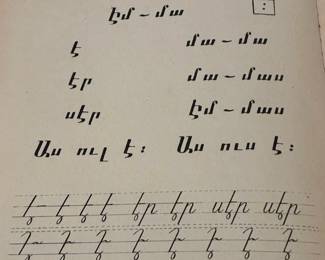 Էմ – մա :
է մա – մա
էր մա – մաս
սէր Էմ – մաս
Աս ուլ է։ Աս ուս է։
է է է է էր էր սէր սէր